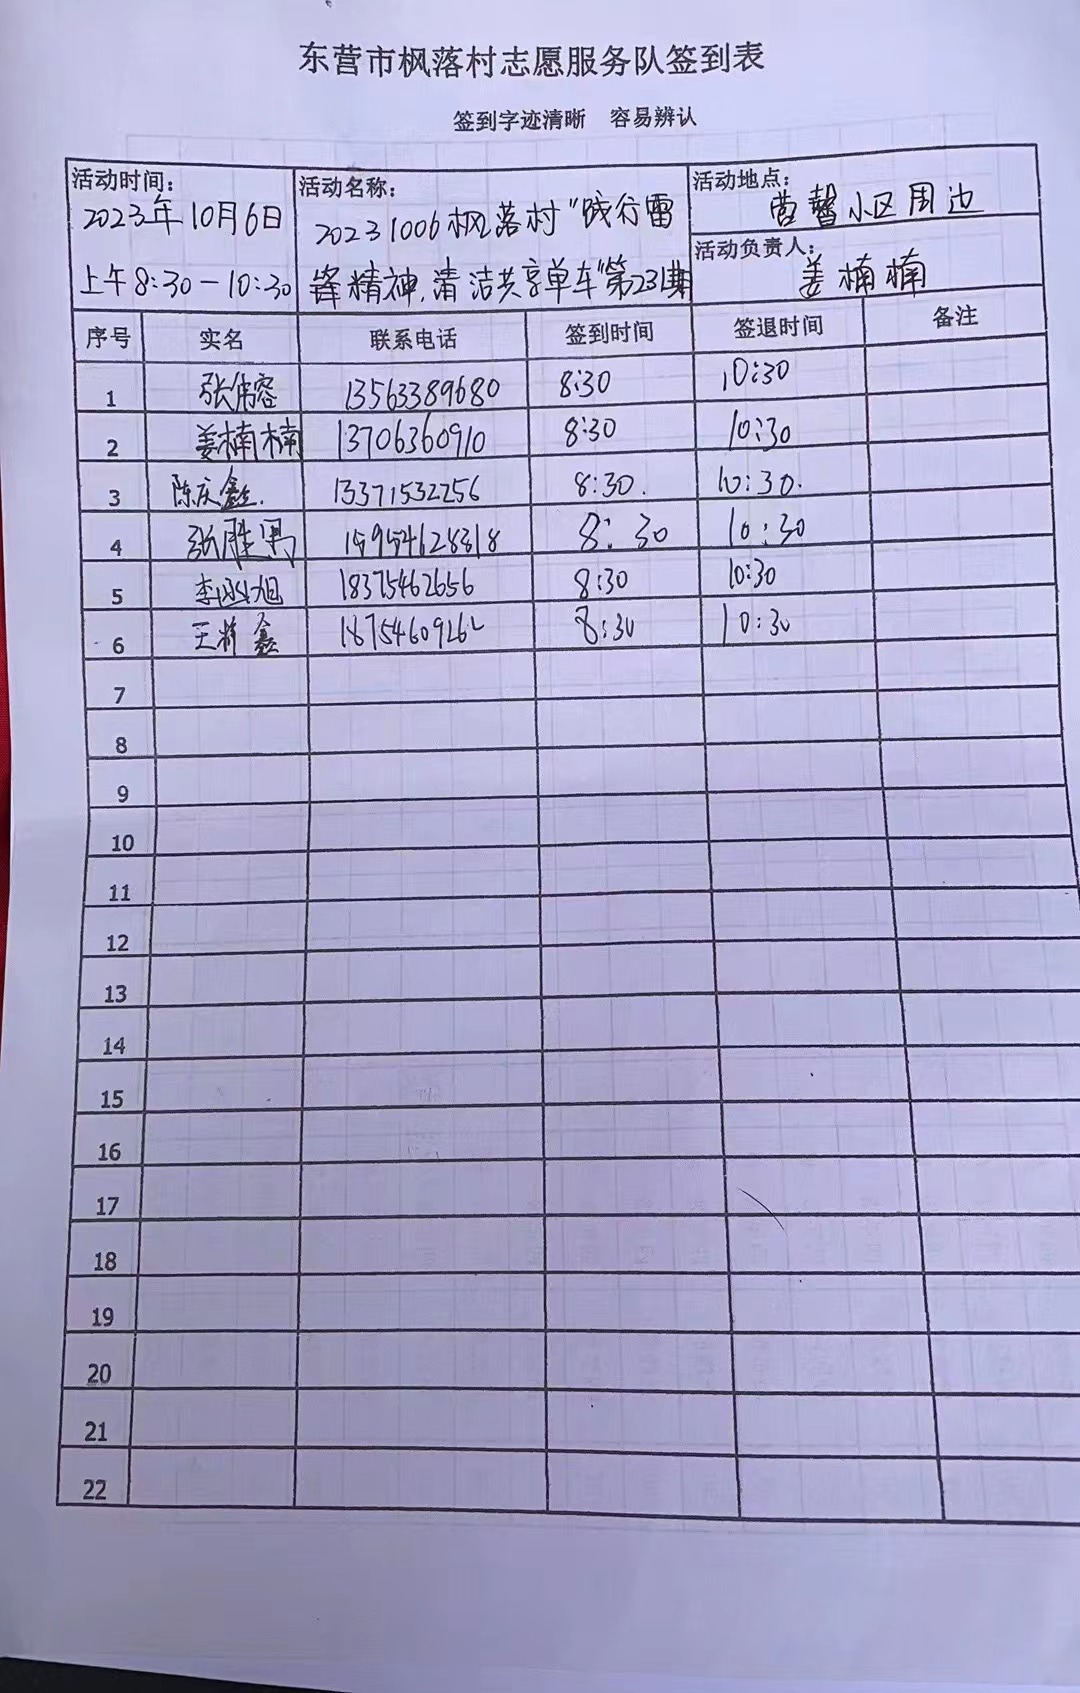 东营市枫落村志愿服务队签到表
签到字迹清晰 容易辨认
活动时间:
2023年10月6日
上午8:30-10:30
活动名称:
20231006枫落村"践行雷
锋精神,清洁共享单车"第231期
活动地点:
小区周边
活动负责人:
姜楠楠
序号 实名 联系电话 签到时间 签退时间 备注
1 张伟容 13563389680 8:30 10:30
2 姜楠楠 13706360910 8:30 10:30
3 陈庆鑫. 13371532256 8:30. 10:30.
4 张胜男 15954628318 8:30 10:30
5 李 旭 18375462656 8:30 10:30
6 王将鑫 18754609262 8:30 10:30
7
8
9
10
11
12
13
14
15
16
17
18
19
20
21
22